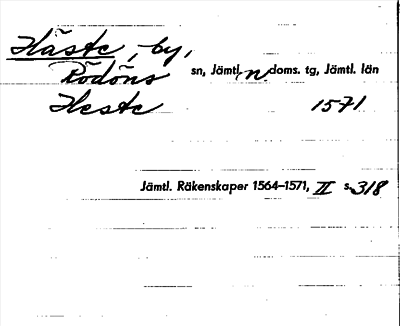 Häste, by,
Rödöns sn, Jämtl. n doms. tg, Jämtl. län
Heste 1571
Jämtl. Räkenskaper 1564–1571, II s. 318